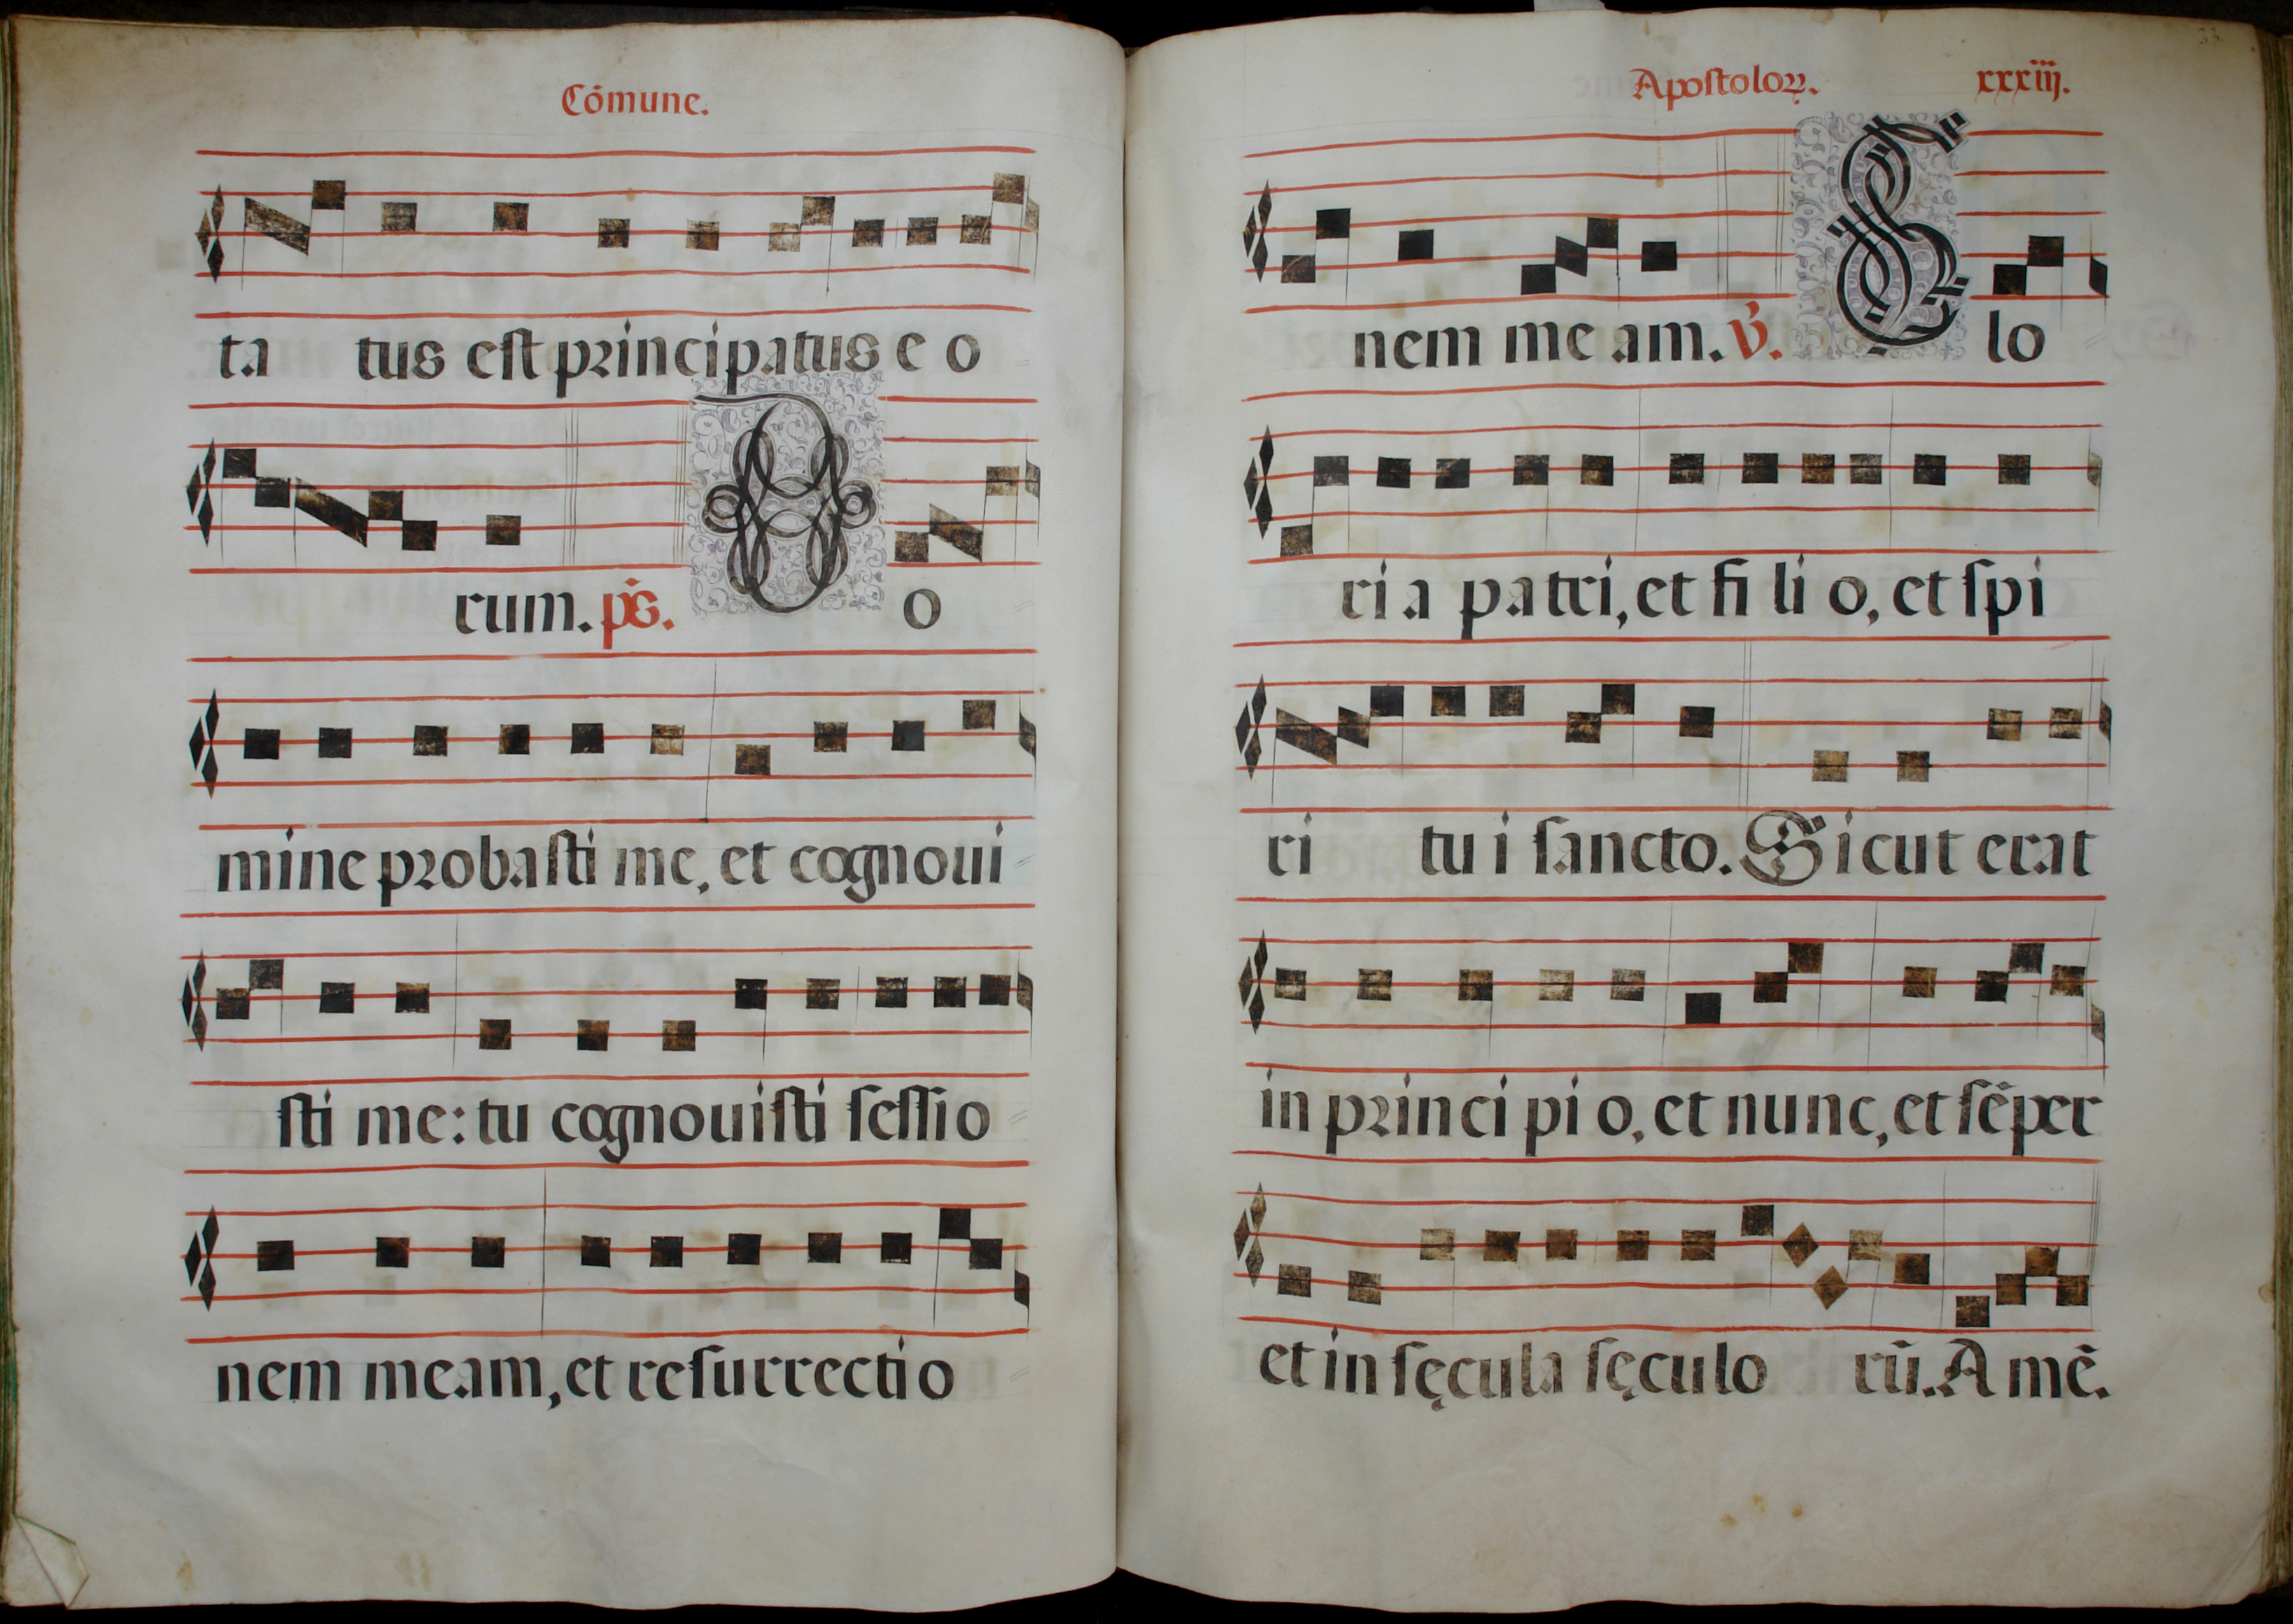 Cōmune.
ta tus eſt principatus e o
rum. ps̄. D o
mine probaſti me, et cognoui
ſti me: tu cognouiſti ſeſſio
nem meam, et reſurrectio
Apoſtoloꝝ. xxxiij.
nem me am. v̄. G lo
ri a patri, et fi li o, et ſpi
ri tu i ſancto. Sicut erat
in principi o, et nunc, et ſēper
et in ſęcula ſęculo rū. A mē.